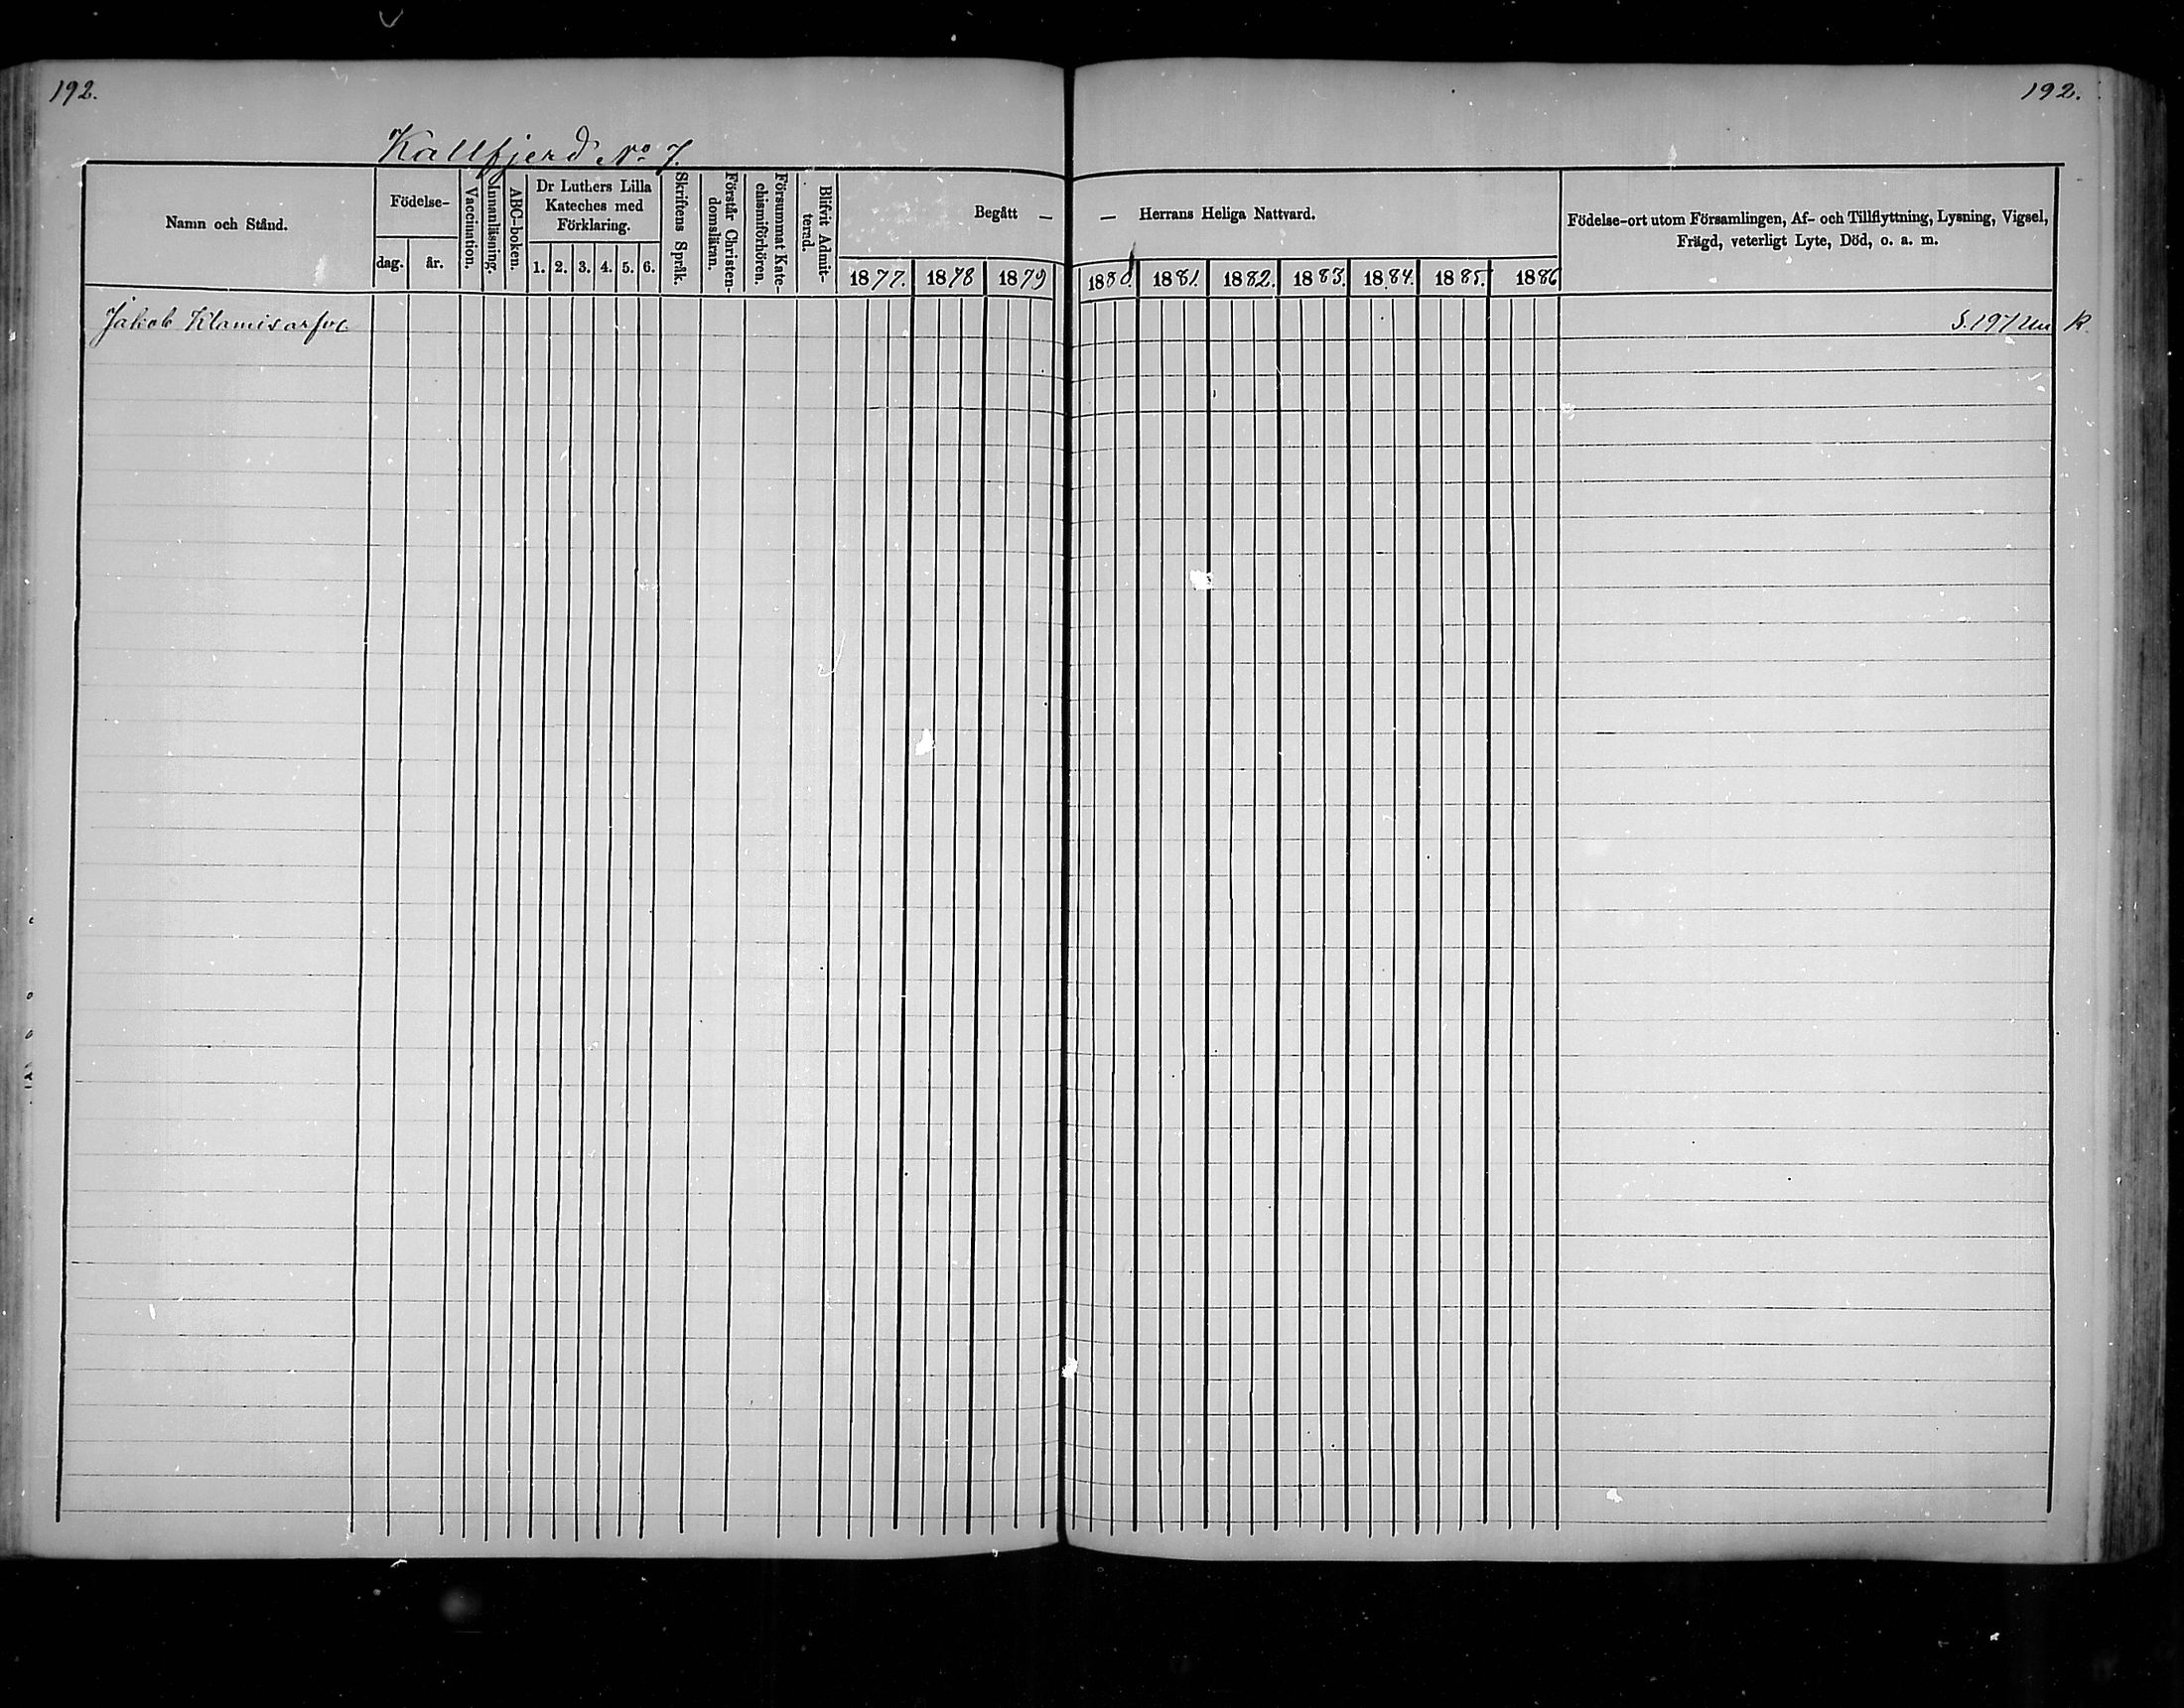 192.
192.
Kallfjerd No 7.
Namn och Stånd.
Födelse-
dag.
år.
Vaccination.
Innanläsning.
ABC-boken.
Dr Luthers Lilla
Kateches med
Förklaring.
1. 2. 3. 4. 5. 6.
Skriftens Språk.
Förstår Christen-
domsläran.
Försummat Kate-
chismiförhören.
Blifvit Admit-
terad.
Begått — — Herrans Heliga Nattvard.
1877. 1878 1879 1880. 1881. 1882. 1883. 1884. 1885. 1886
Födelse-ort utom Församlingen, Af- och Tillflyttning, Lysning, Vigsel,
Frägd, veterligt Lyte, Död, o. a. m.
Jakob Klamisarfve
S. 197